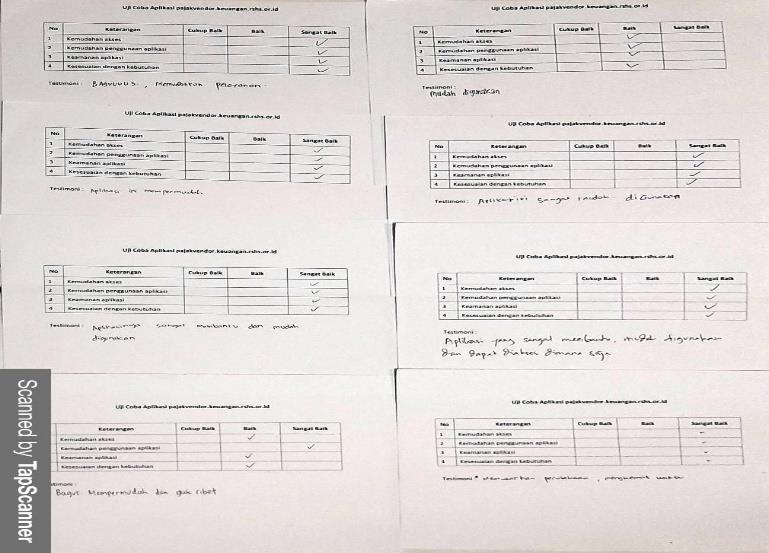 Uji Coba Aplikasi pajakvendor.keuangan.rshs.or.id
No Keterangan Cukup Baik Baik Sangat Baik
1 Kemudahan akses ✓
2 Kemudahan penggunaan aplikasi ✓
3 Keamanan aplikasi ✓
4 Kesesuaian dengan kebutuhan ✓
Testimoni : BAGUUUS, Memudahkan pelaporan.
Uji Coba Aplikasi pajakvendor.keuangan.rshs.or.id
No Keterangan Cukup Baik Baik Sangat Baik
1 Kemudahan akses ✓
2 Kemudahan penggunaan aplikasi ✓
3 Keamanan aplikasi ✓
4 Kesesuaian dengan kebutuhan ✓
Testimoni :
Mudah digunakan
Uji Coba Aplikasi pajakvendor.keuangan.rshs.or.id
No Keterangan Cukup Baik Baik Sangat Baik
1 Kemudahan akses ✓
2 Kemudahan penggunaan aplikasi ✓
3 Keamanan aplikasi ✓
4 Kesesuaian dengan kebutuhan ✓
Testimoni : Aplikasi ini mempermudah
Uji Coba Aplikasi pajakvendor.keuangan.rshs.or.id
No Keterangan Cukup Baik Baik Sangat Baik
1 Kemudahan akses ✓
2 Kemudahan penggunaan aplikasi ✓
3 Keamanan aplikasi ✓
4 Kesesuaian dengan kebutuhan ✓
Testimoni : Aplikasi ini sangat mudah digunakan
Uji Coba Aplikasi pajakvendor.keuangan.rshs.or.id
No Keterangan Cukup Baik Baik Sangat Baik
1 Kemudahan akses ✓
2 Kemudahan penggunaan aplikasi ✓
3 Keamanan aplikasi ✓
4 Kesesuaian dengan kebutuhan ✓
Testimoni : Aplikasinya sangat membantu dan mudah
digunakan
Uji Coba Aplikasi pajakvendor.keuangan.rshs.or.id
No Keterangan Cukup Baik Baik Sangat Baik
1 Kemudahan akses ✓
2 Kemudahan penggunaan aplikasi ✓
3 Keamanan aplikasi ✓
4 Kesesuaian dengan kebutuhan ✓
Testimoni :
Aplikasi yang sangat membantu, mudah digunakan
dan dapat diakses dimana saja
Uji Coba Aplikasi pajakvendor.keuangan.rshs.or.id
Keterangan Cukup Baik Baik Sangat Baik
Kemudahan akses ✓
Kemudahan penggunaan aplikasi ✓
Keamanan aplikasi ✓
Kesesuaian dengan kebutuhan ✓
timoni :
Bagus Mempermudah dan gak ribet
Uji Coba Aplikasi pajakvendor.keuangan.rshs.or.id
No Keterangan Cukup Baik Baik Sangat Baik
1 Kemudahan akses
2 Kemudahan penggunaan aplikasi
3 Keamanan aplikasi
4 Kesesuaian dengan kebutuhan
Testimoni : menghemat waktu
Scanned by TapScanner